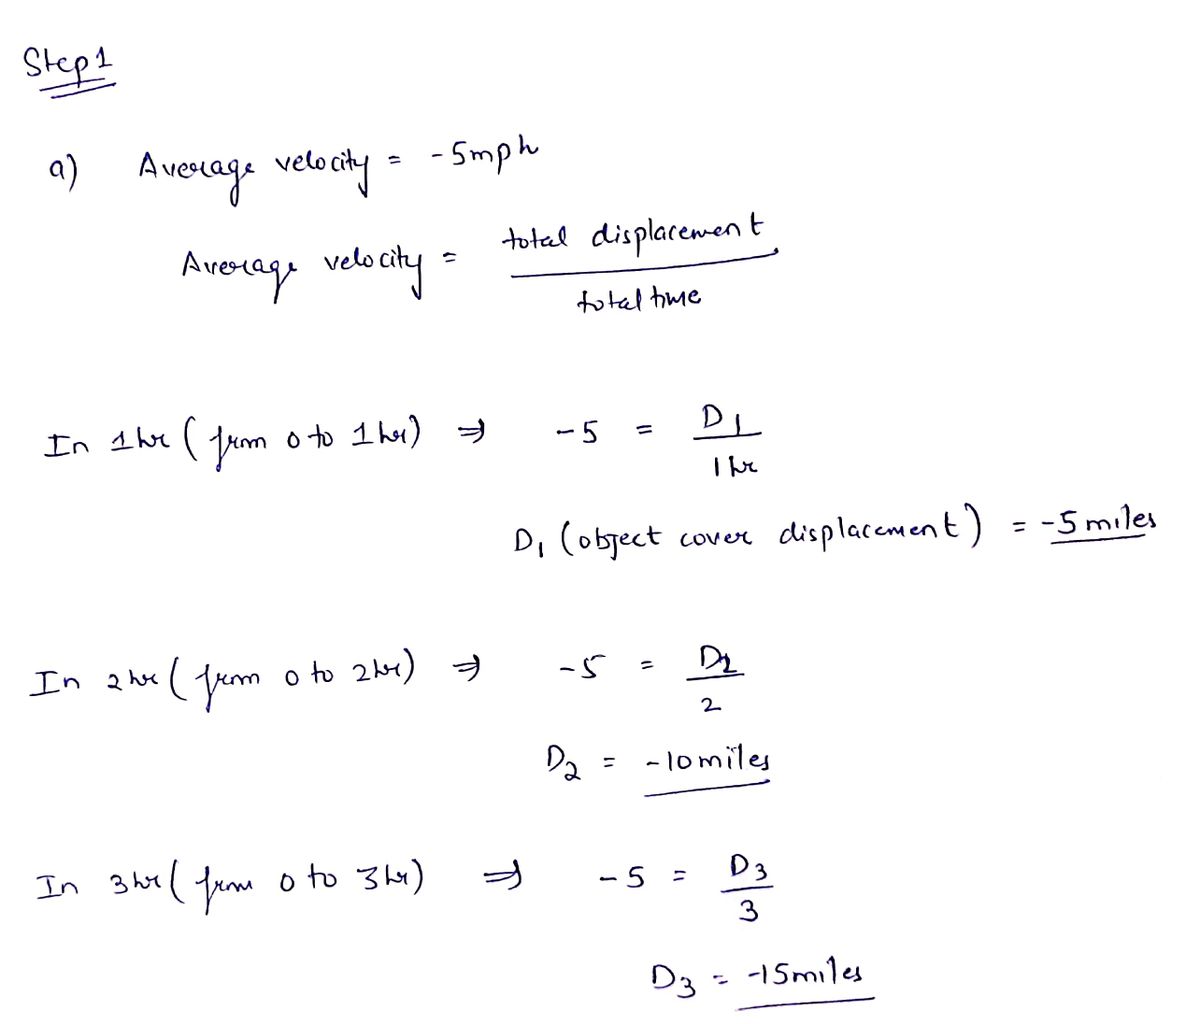 Step 1
a) Average velocity = -5mph
Average velocity = total displacement
total time
In 1hr (from 0 to 1hr) ⇒ -5 = D1
1hr
D1 (object cover displacement) = -5 miles
In 2hr (from 0 to 2hr) ⇒ -5 = D2
2
D2 = -10 miles
In 3hr (from 0 to 3hr) ⇒ -5 = D3
3
D3 = -15 miles